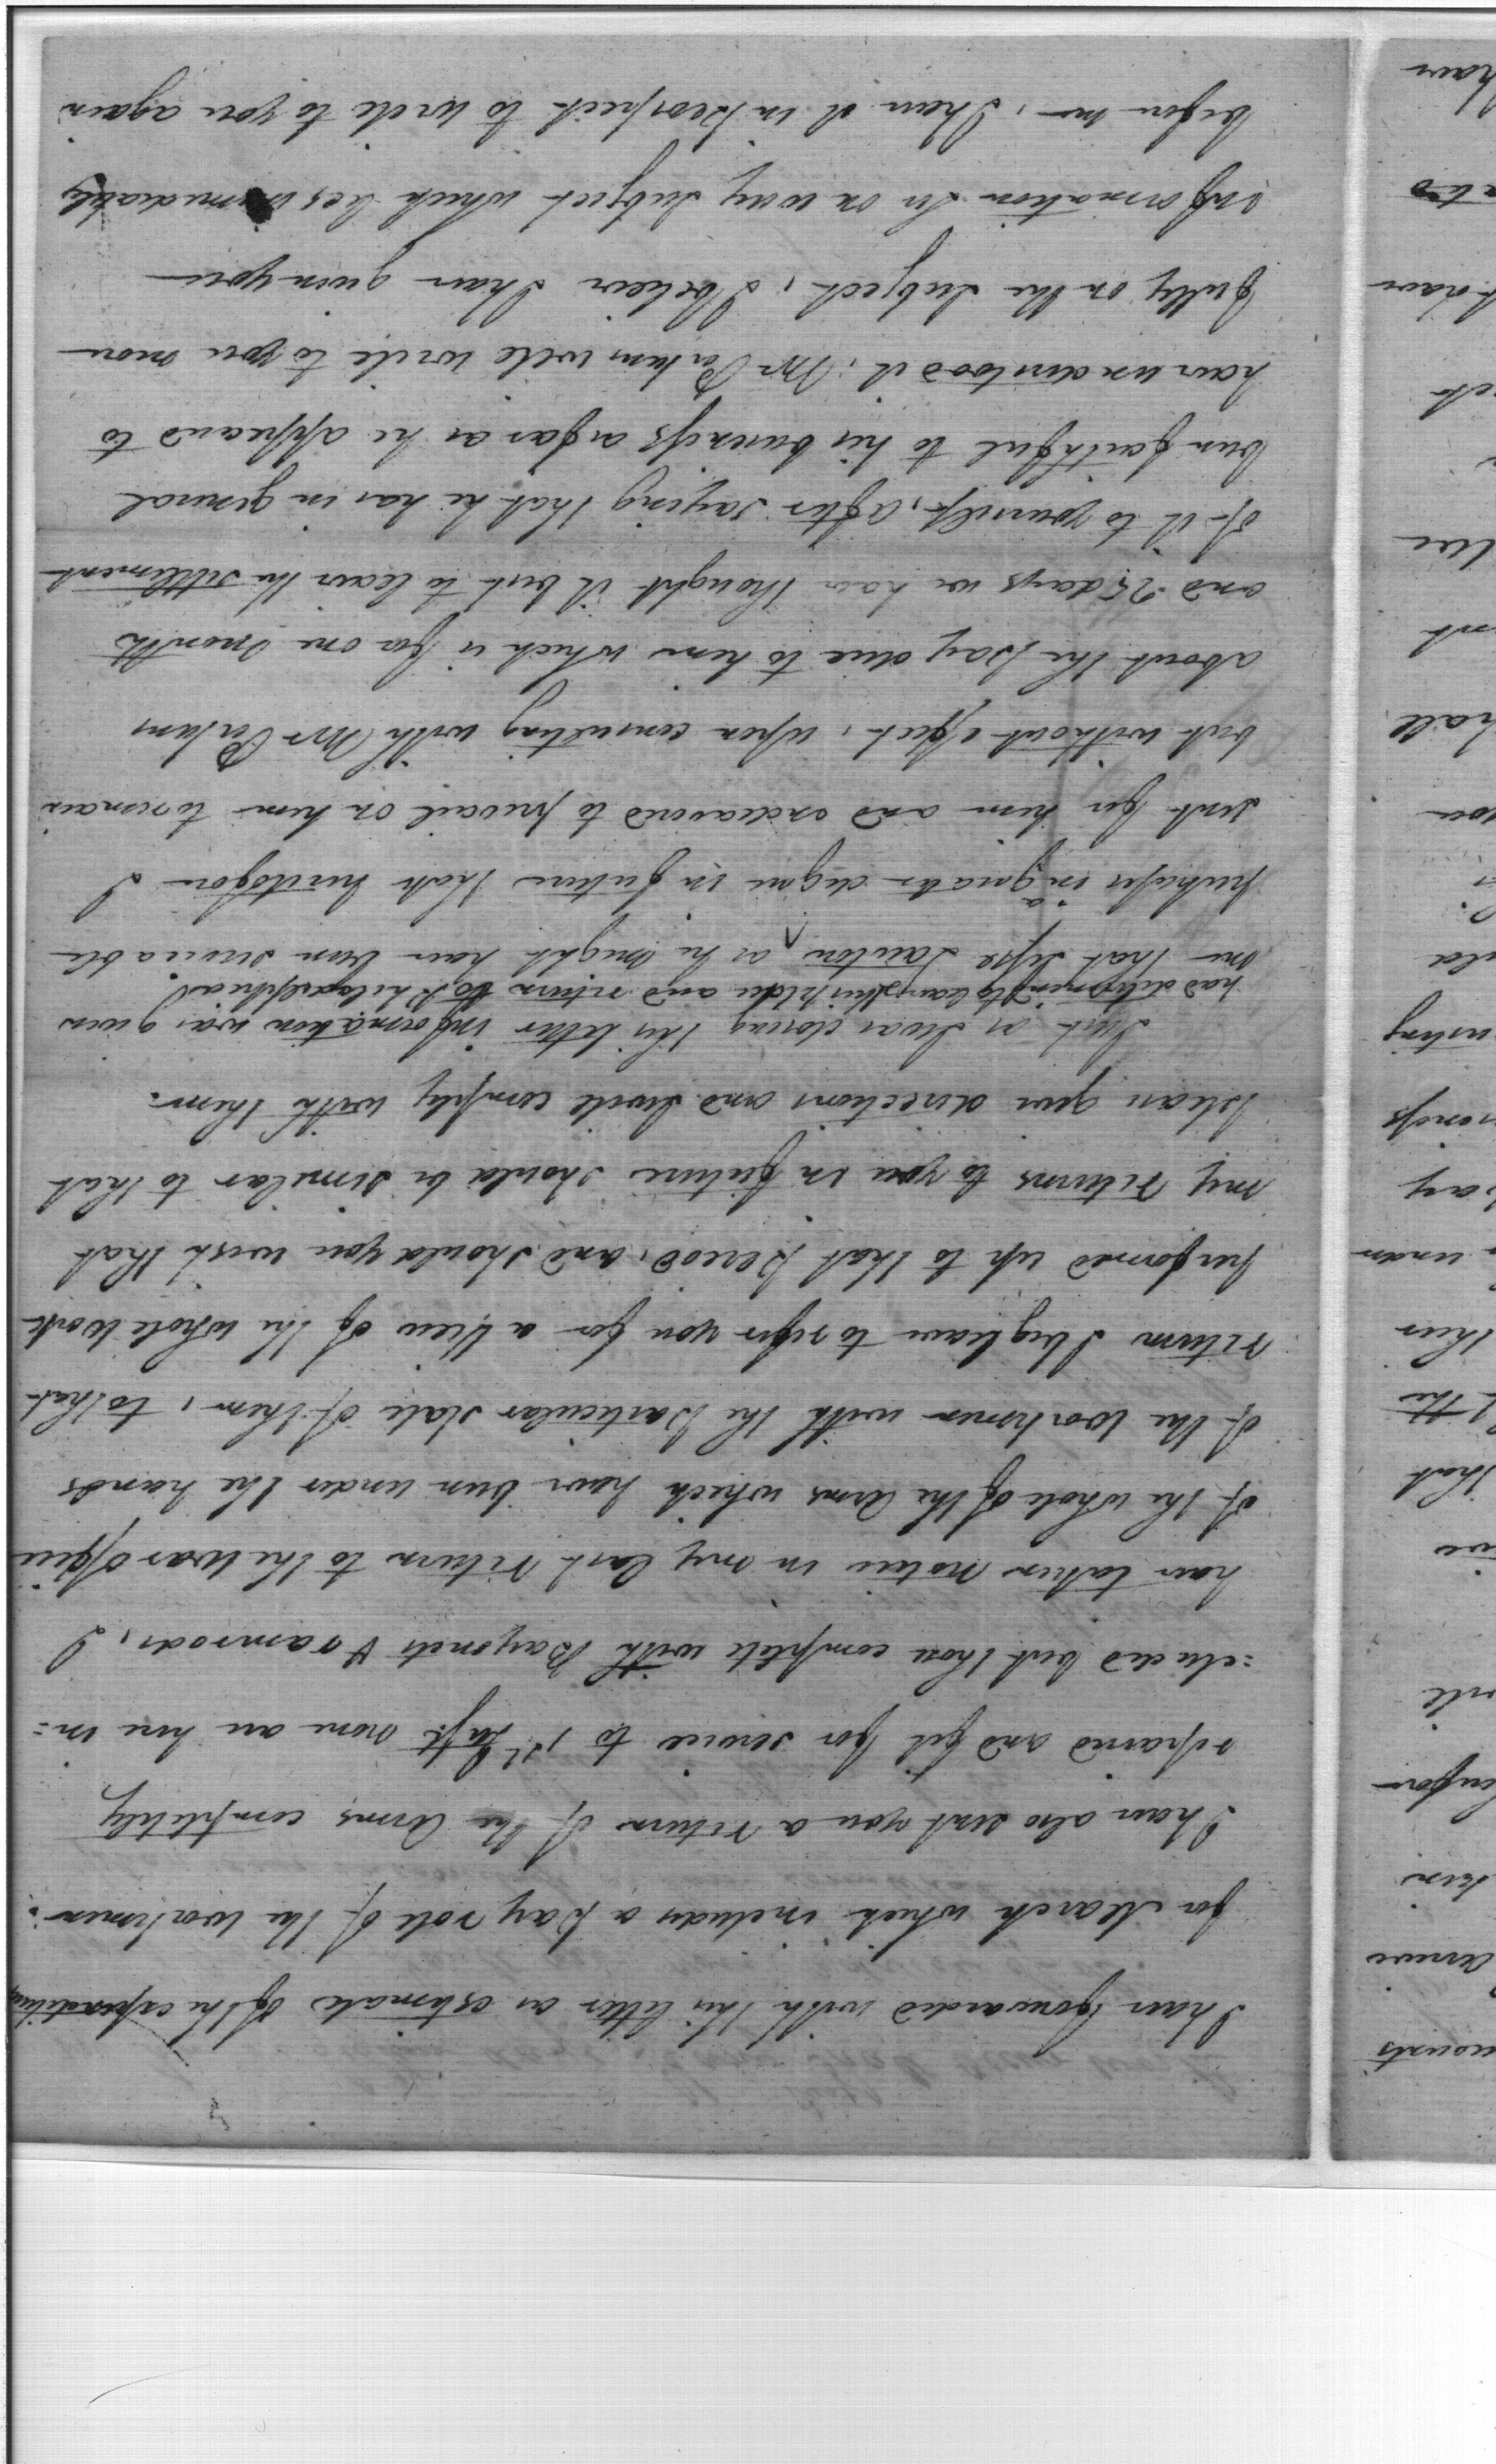 3
I have forwarded with this letter an estimate of the expenditures
for March which includes a Pay role of the workmen:
I have also sent you a return of the Arms completely
repaired and fit for service to 1st Inst. none are here in=
=cluded but those complete with Bayonets & ramrods, I
have taken notice in my last return to the War office
of the whole of the Arms which have been under the hands
of the workmen with the Particular state of them, to that
return I beg leave to refer you for a View of the whole work
performed up to that Period, and should you wish that
my returns to you in future should be similar to that
Please give directions and I will comply with them:
Just as I was closing this letter information was given
me that Sype had determined to leave this place and return to Philadelphia
as he might have been serviceable
perhaps in a greater degree in future that heretofore I
sent for him and endeavored to prevail on him to remain
but without effect, upon consulting with Mr Perkins
about the Pay due to him which is for one month
and 25 days we have thought it best to leave the settlement
of it to yourself, after saying that he has in general
been faithful to his business as far as he appeared to
have understood it: Mr Perkins will write to you more
fully on the subject, I believe I have given you
information Sir on every Subject which lies immediately
before me, I have it in Prospect to write to you again